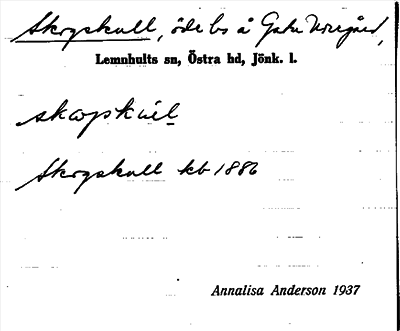 Skogskull, öde bs å Gsta Norregård,
Lemnhults sn, Östra hd, Jönk. l.
skogskul
Skogskull kb 1886
Annalisa Anderson 1937